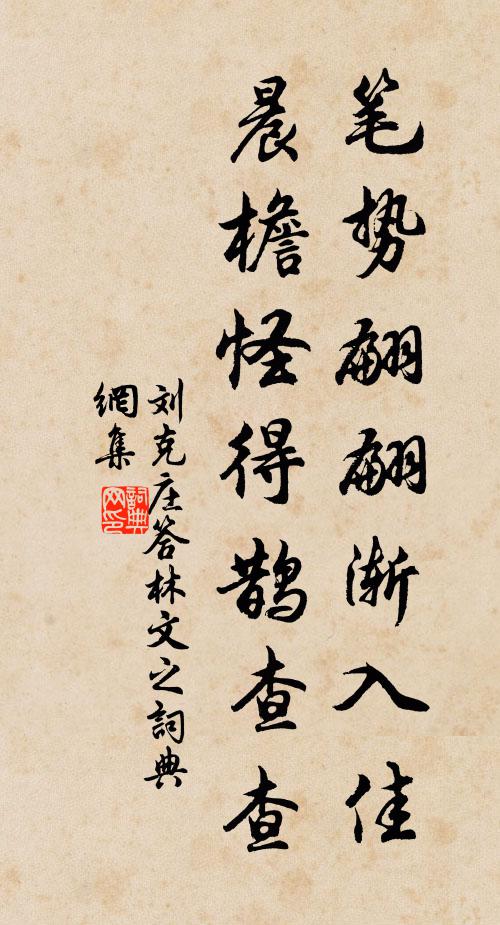 笔势翩翩渐入佳
晨檐怪得鹊查查
刘克庄答林文之詞典
網集
詞典
网印